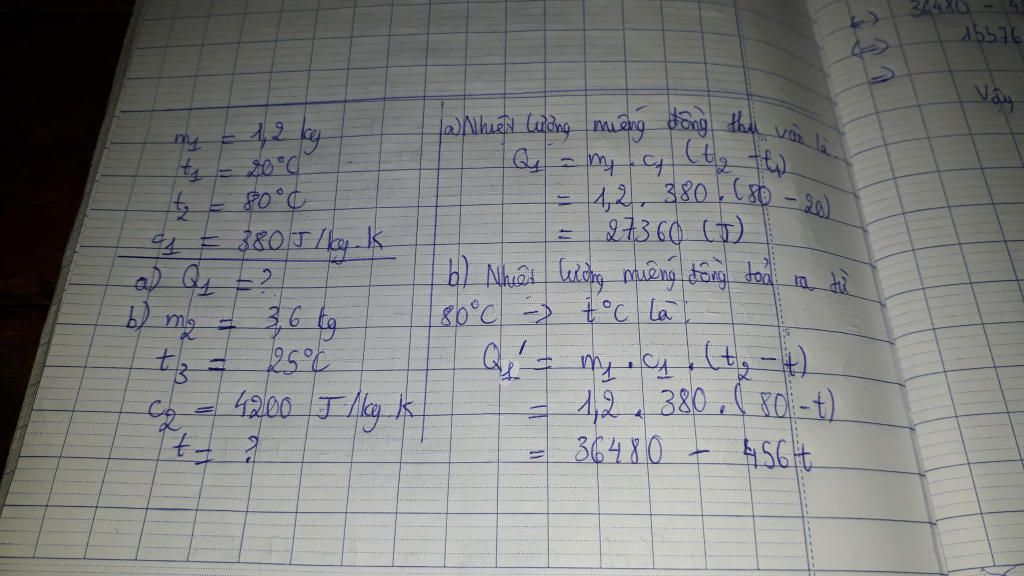 m1 = 1,2 kg
t1 = 20°C
t2 = 80°C
c1 = 380 J/kg.K
a) Q1 = ?
b) m2 = 3,6 kg
t3 = 25°C
c2 = 4200 J/kg.K
t = ?
a) Nhiệt lượng miếng đồng thu vào là
Q1 = m1 . c1 (t2 - t1)
= 1,2 . 380 . (80 - 20)
= 27360 (J)
b) Nhiệt lượng miếng đồng toả ra từ
80°C -> t°C là:
Q1' = m1 . c1 . (t2 - t)
= 1,2 . 380 . (80 - t)
= 36480 - 456t
<=> 36480 -
<=> 15576
=>
Vậy